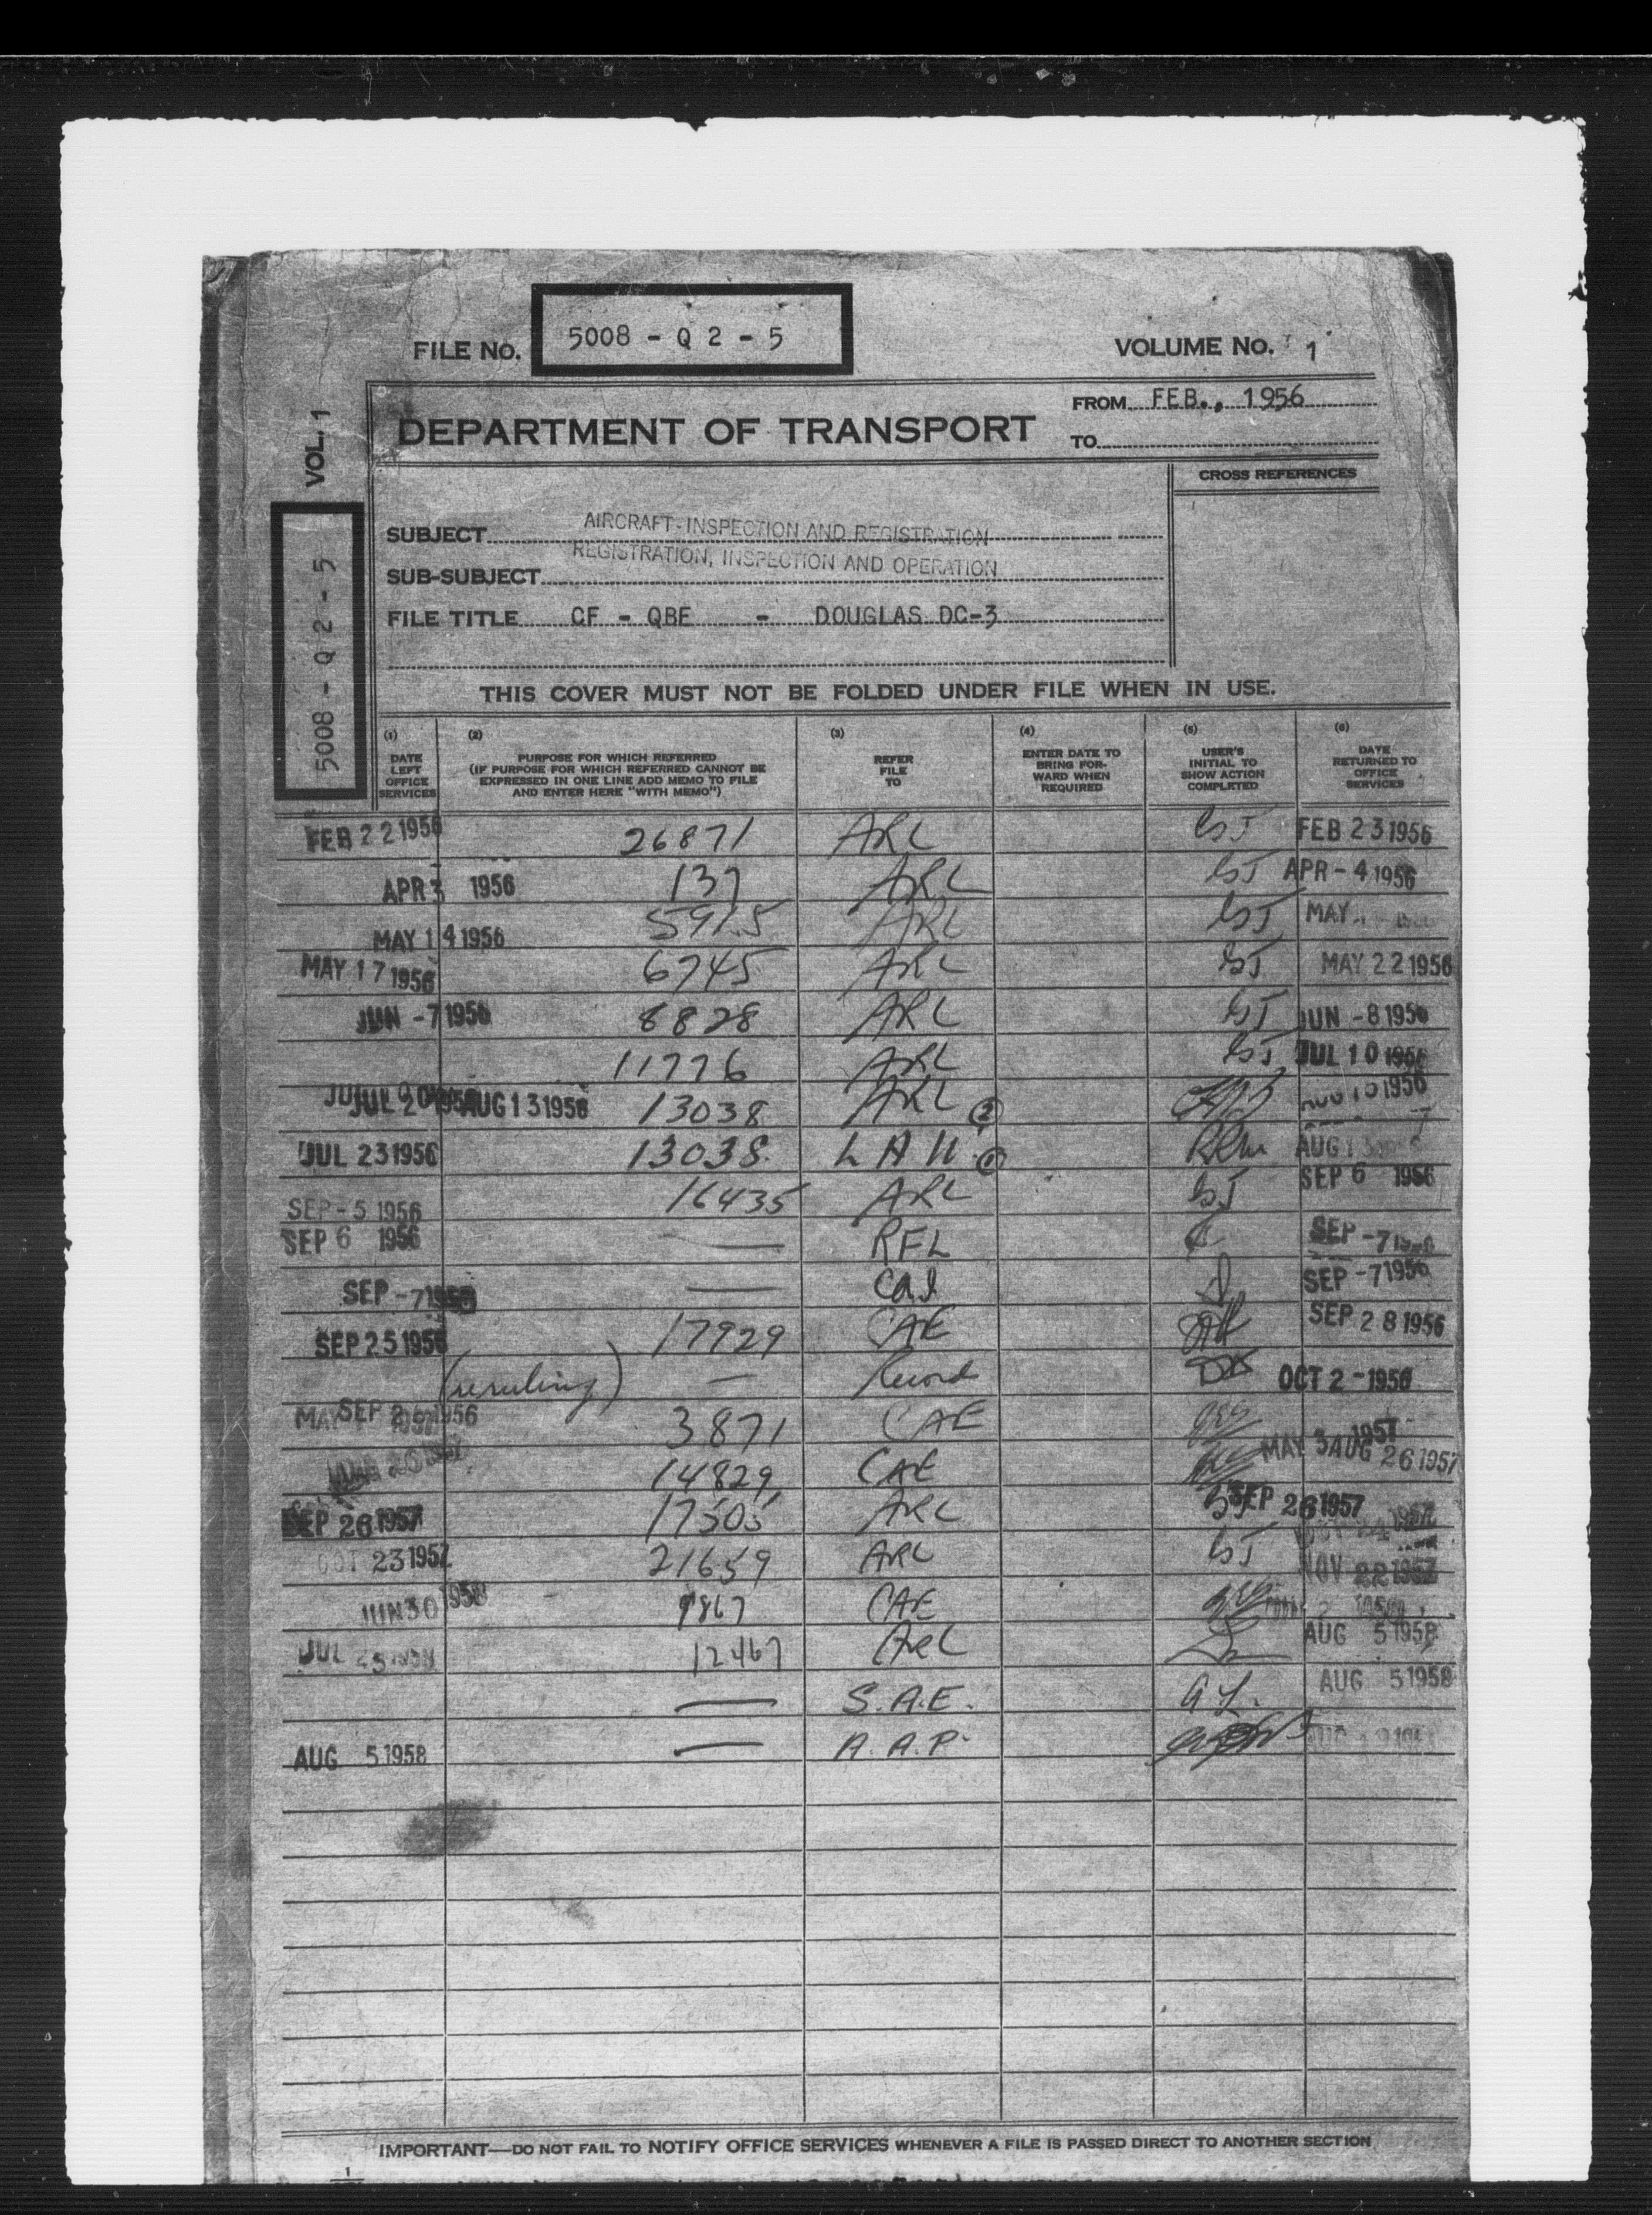 FILE NO. 5008 - Q 2 - 5 VOLUME NO. 1
VOL. 1
5008 - Q 2 - 5
DEPARTMENT OF TRANSPORT
FROM FEB., 1956
TO
CROSS REFERENCES
SUBJECT AIRCRAFT-INSPECTION AND REGISTRATION
REGISTRATION, INSPECTION AND OPERATION
SUB-SUBJECT
FILE TITLE CF - QBE - DOUGLAS DC-3
THIS COVER MUST NOT BE FOLDED UNDER FILE WHEN IN USE.
(1) DATE LEFT OFFICE SERVICES
(2) PURPOSE FOR WHICH REFERRED (IF PURPOSE FOR WHICH REFERRED CANNOT BE EXPRESSED IN ONE LINE ADD MEMO TO FILE AND ENTER HERE "WITH MEMO")
(3) REFER FILE TO
(4) ENTER DATE TO BRING FOR-WARD WHEN REQUIRED
(5) USER'S INITIAL TO SHOW ACTION COMPLETED
(6) DATE RETURNED TO OFFICE SERVICES
FEB 22 1956 26871 ARL FEB 23 1956
APR 3 1956 137 ARL APR - 4 1956
MAY 14 1956 5915 ARL MAY
MAY 17 1956 6745 ARL MAY 22 1956
JUN - 7 1956 8828 ARL JUN - 8 1956
11776 ARL JUL 10 1956
AUG 13 1956 13038 ARL 2 1956
JUL 23 1956 13038 AUG
SEP - 5 1956 16435 ARL SEP 6 1956
SEP 6 1956 — RFL SEP - 7
SEP - 7 — SEP - 7 1956
SEP 25 1956 17929 CAE SEP 28 1956
— Record OCT 2 - 1956
SEP 1956 3871 CAE MAY 3 1957
14829 CAE AUG 26 1957
SEP 26 1957 17505 ARL SEP 26 1957
OCT 23 1957 21659 ARL NOV 22 1957
JUN 30 1958 9867 CAE
JUL 12467 ARL AUG 5 1958
— S.A.E. AUG 5 1958
AUG 5 1958 — A.A.P.
IMPORTANT—DO NOT FAIL TO NOTIFY OFFICE SERVICES WHENEVER A FILE IS PASSED DIRECT TO ANOTHER SECTION
1